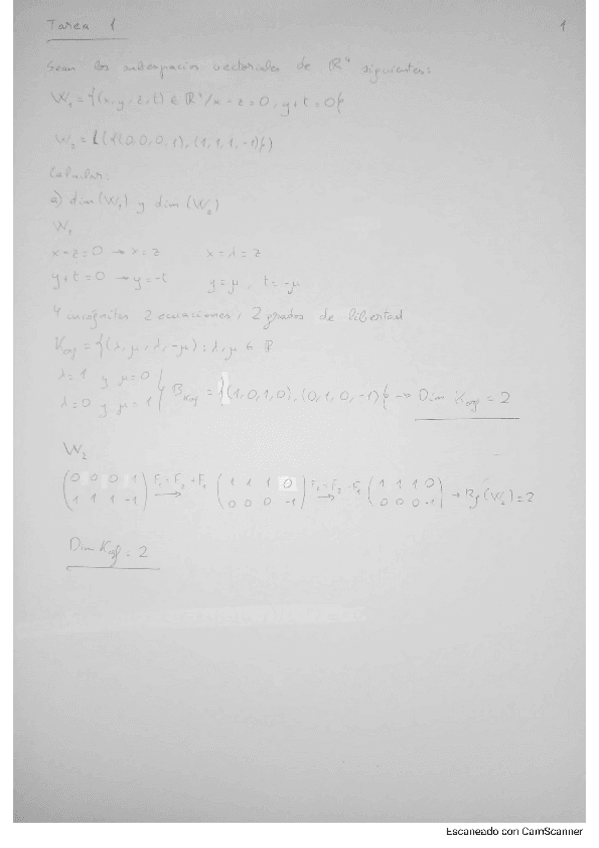 Tarea 1
1
Sean los subespacios vectoriales de ℝ⁴ siguientes:
W₁ = {(x, y, z, t) ∈ ℝ⁴ / x - z = 0, y + t = 0}
W₂ = L({(0, 0, 0, 1), (1, 1, 1, -1)})
Calcular:
a) dim (W₁) y dim (W₂)
W₁
x - z = 0 → x = z x = λ = z
y + t = 0 → y = -t y = μ, t = -μ
4 incógnitas 2 ecuaciones, 2 grados de libertad
= {(λ, μ, λ, -μ) : λ, μ ∈ ℝ
λ = 1 y μ = 0
λ = 0 y μ = 1 } B = {(1, 0, 1, 0), (0, 1, 0, -1)} → Dim = 2
W₂
(0 0 0 1 / 1 1 1 -1) F₁ = F₂ + F₁ → (1 1 1 0 / 0 0 0 -1) → (1 1 1 0 / 0 0 0 -1) → Rg (W₂) = 2
Dim = 2
Escaneado con CamScanner